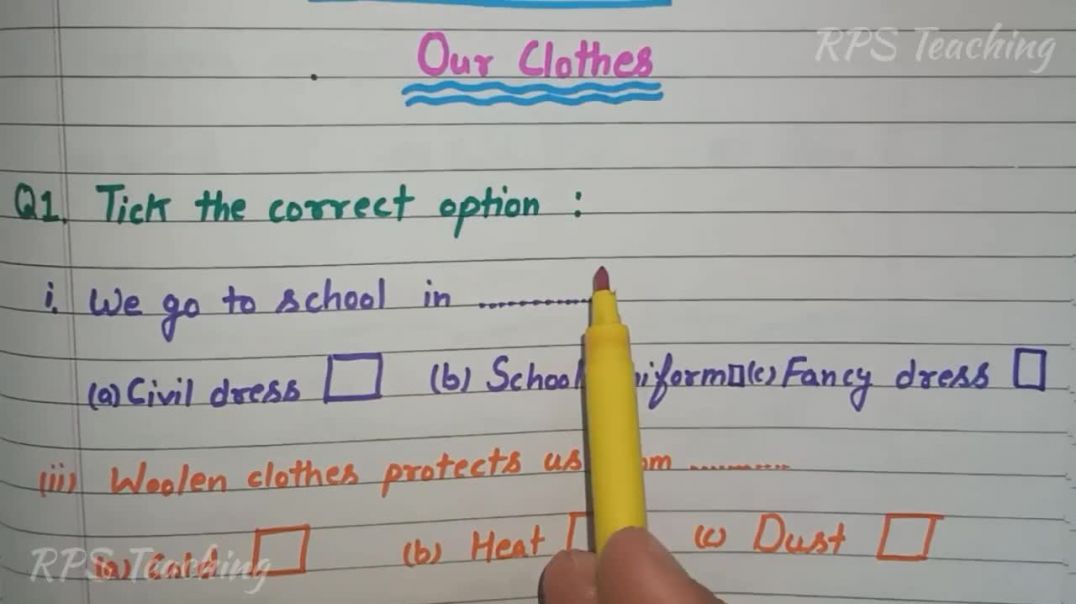 Our Clothes
RPS Teaching
Q1. Tick the correct option :
i. We go to school in ............
(a) Civil dress (b) School iform (c) Fancy dress
(ii) Woolen clothes protects us om ............
(a) Cold (b) Heat (c) Dust
RPS Teaching